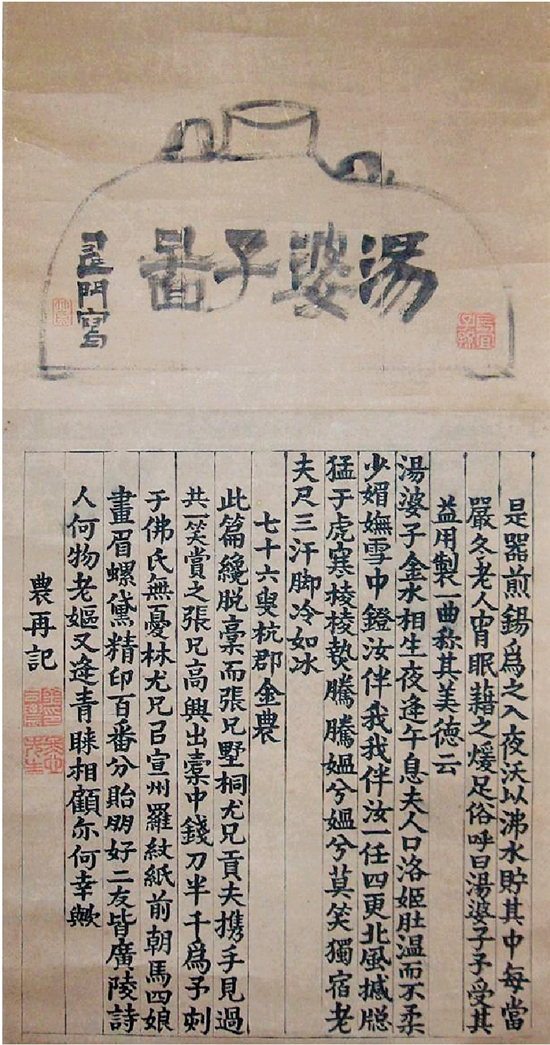 湯婆子啚
壽門寫
長宜子孫
是器煎鍚爲之入夜沃以沸水貯其中每當
嚴冬老人甯眠藉之煖足俗呼曰湯婆子予受其
益用製一曲称其美德云
湯婆子金水相生夜逢午息夫人口洛姬肚温而不柔
少媚嫵雪中鐙汝伴我我伴汝一任四更北風撼牕
猛于虎寞棱棱熱騰騰媪兮媪兮莫笑獨宿老
夫尺三汗脚冷如冰
七十六叟杭郡金農
此篇纔脱稾而張兄墅桐尤兄貢夫携手見過
共一笑賞之張兄高興出橐中錢刀半千爲予刻
于佛氏無憂林尤兄㠯宣州羅紋紙前朝馬四娘
畫眉螺黛精印百番分貽朋好二友皆廣陵詩
人何物老嫗又逢青睞相顧尔何幸歟
農再記